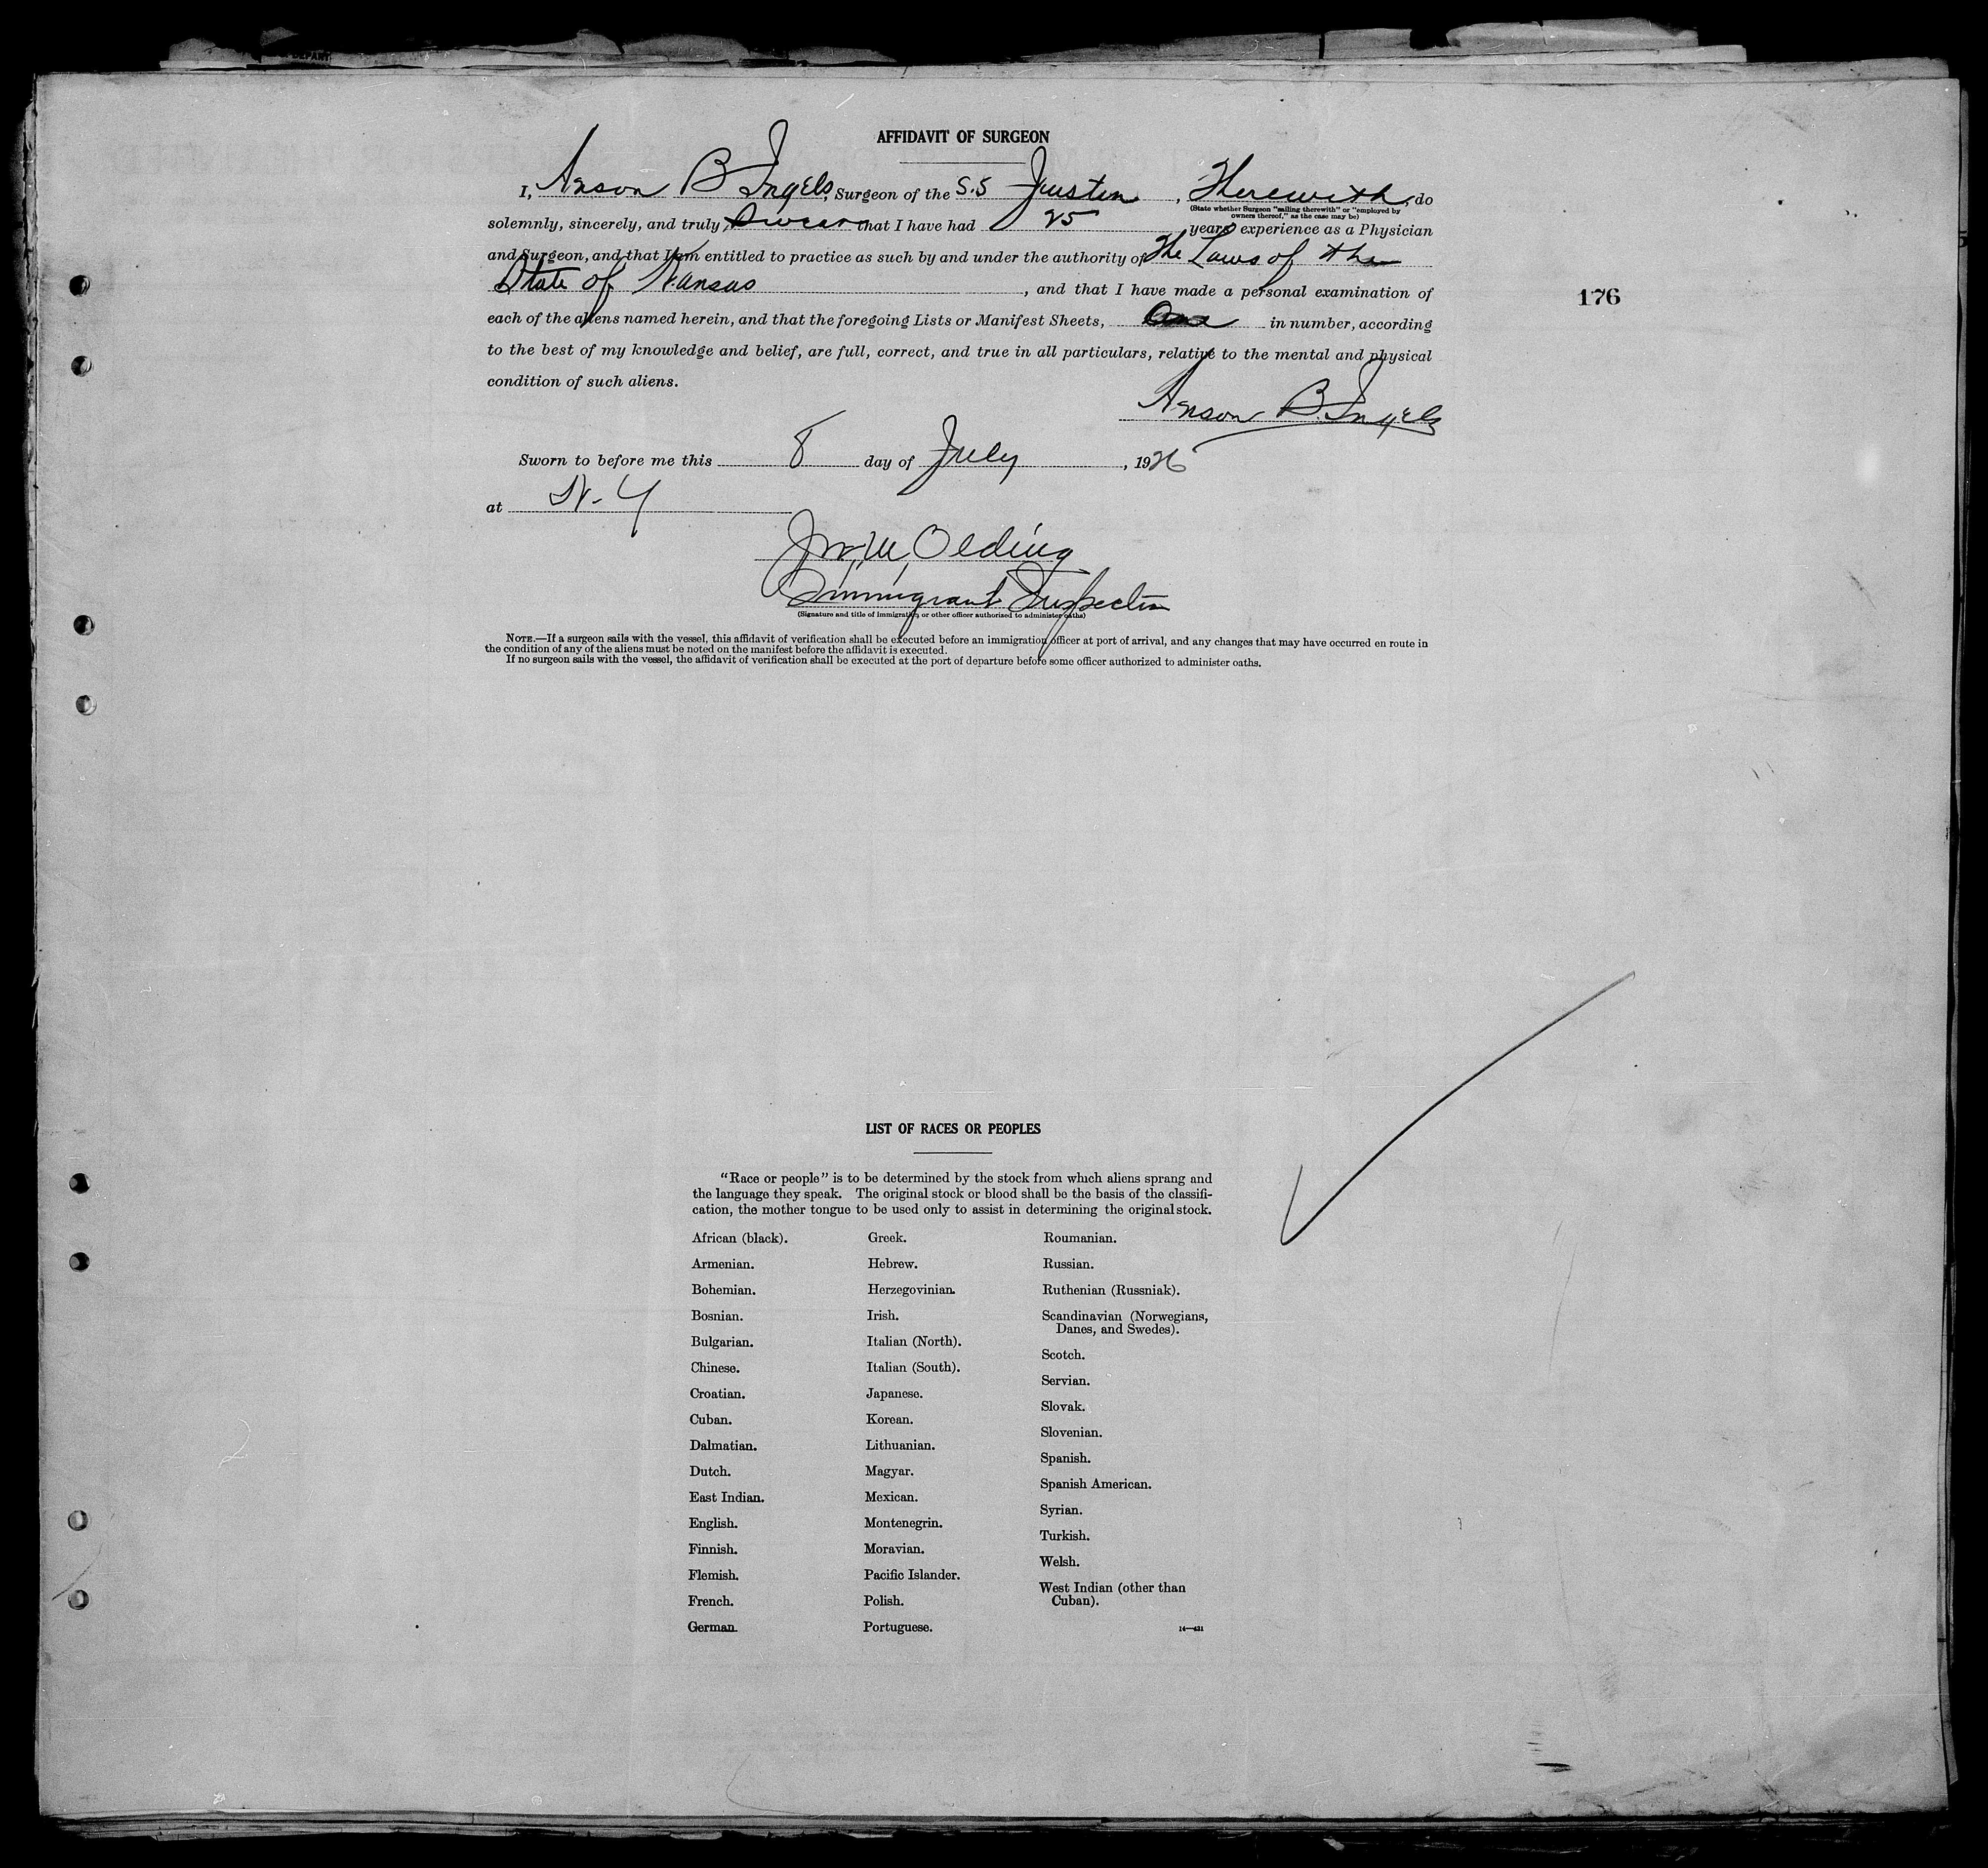 AFFIDAVIT OF SURGEON
I, Anson B Ingels, Surgeon of the S.S Justin, Therewith, do
(State whether Surgeon "sailing therewith" or "employed by
owners thereof," as the case may be)
solemnly, sincerely, and truly, Swear that I have had 25 years' experience as a Physician
and Surgeon, and that I am entitled to practice as such by and under the authority of The Laws of the
State of Kansas, and that I have made a personal examination of
176
each of the aliens named herein, and that the foregoing Lists or Manifest Sheets, One in number, according
to the best of my knowledge and belief, are full, correct, and true in all particulars, relative to the mental and physical
condition of such aliens.
Anson B. Ingels
Sworn to before me this 8 day of July, 1926
at N-Y
Jno. M. Olding
Immigrant Inspector
(Signature and title of immigration or other officer authorized to administer oaths)
NOTE.—If a surgeon sails with the vessel, this affidavit of verification shall be executed before an immigration officer at port of arrival, and any changes that may have occurred en route in
the condition of any of the aliens must be noted on the manifest before the affidavit is executed.
If no surgeon sails with the vessel, the affidavit of verification shall be executed at the port of departure before some officer authorized to administer oaths.
LIST OF RACES OR PEOPLES
"Race or people" is to be determined by the stock from which aliens sprang and
the language they speak. The original stock or blood shall be the basis of the classifi-
cation, the mother tongue to be used only to assist in determining the original stock.
African (black).
Armenian.
Bohemian.
Bosnian.
Bulgarian.
Chinese.
Croatian.
Cuban.
Dalmatian.
Dutch.
East Indian.
English.
Finnish.
Flemish.
French.
German.
Greek.
Hebrew.
Herzegovinian.
Irish.
Italian (North).
Italian (South).
Japanese.
Korean.
Lithuanian.
Magyar.
Mexican.
Montenegrin.
Moravian.
Pacific Islander.
Polish.
Portuguese.
Roumanian.
Russian.
Ruthenian (Russniak).
Scandinavian (Norwegians,
Danes, and Swedes).
Scotch.
Servian.
Slovak.
Slovenian.
Spanish.
Spanish American.
Syrian.
Turkish.
Welsh.
West Indian (other than
Cuban).